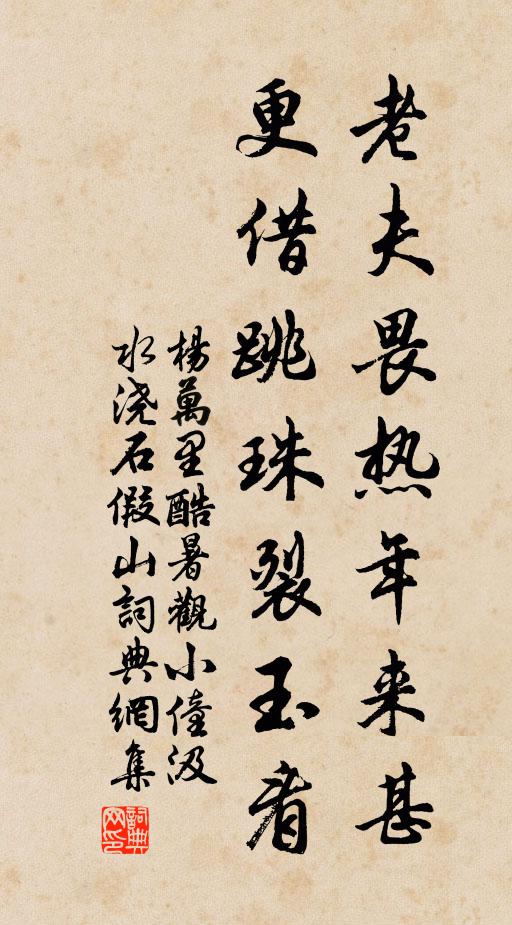 老夫畏热年来甚
更借跳珠裂玉看
楊萬里酷暑觀小僮汲
水浇石假山詞典網集
詞典网印